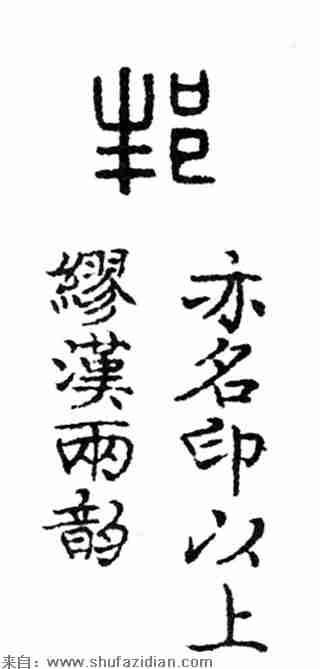 邦
亦名印以上
繆漢兩韵
来自：www.shufazidian.com